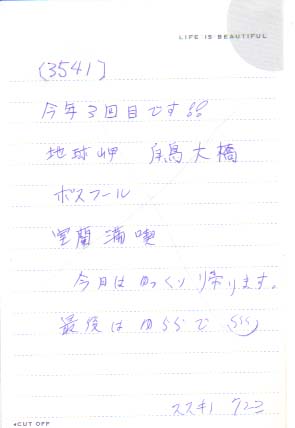 LIFE IS BEAUTIFUL
(3541)
今年3回目です!!
地球岬 白鳥大橋
ボスフール
室蘭満喫
今日はゆっくり帰ります。
最後はゆららで
ススキノ
CUT OFF